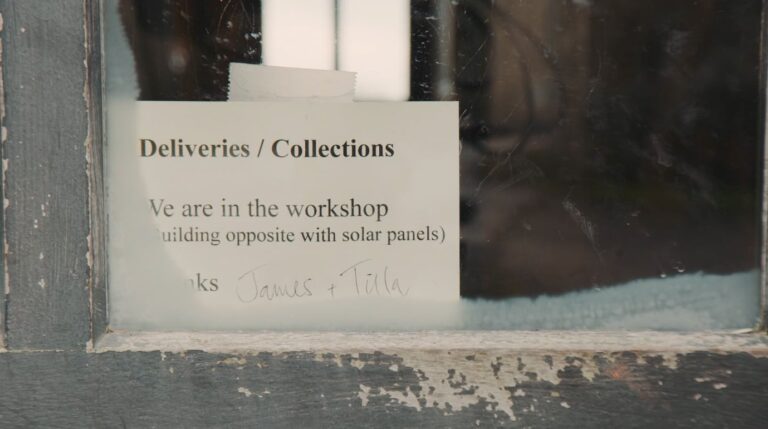 Deliveries / Collections
We are in the workshop
(building opposite with solar panels)
nks James + Tilla